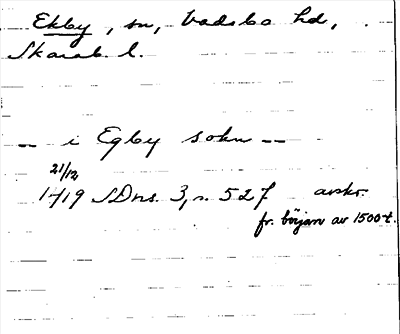 Ekby, sn, Vadsbo hd,
Skarab. l.
-- i Egby sokn --
21/12
1419 SDns. 3, s. 527 avskr.
fr. början av 1500-t.